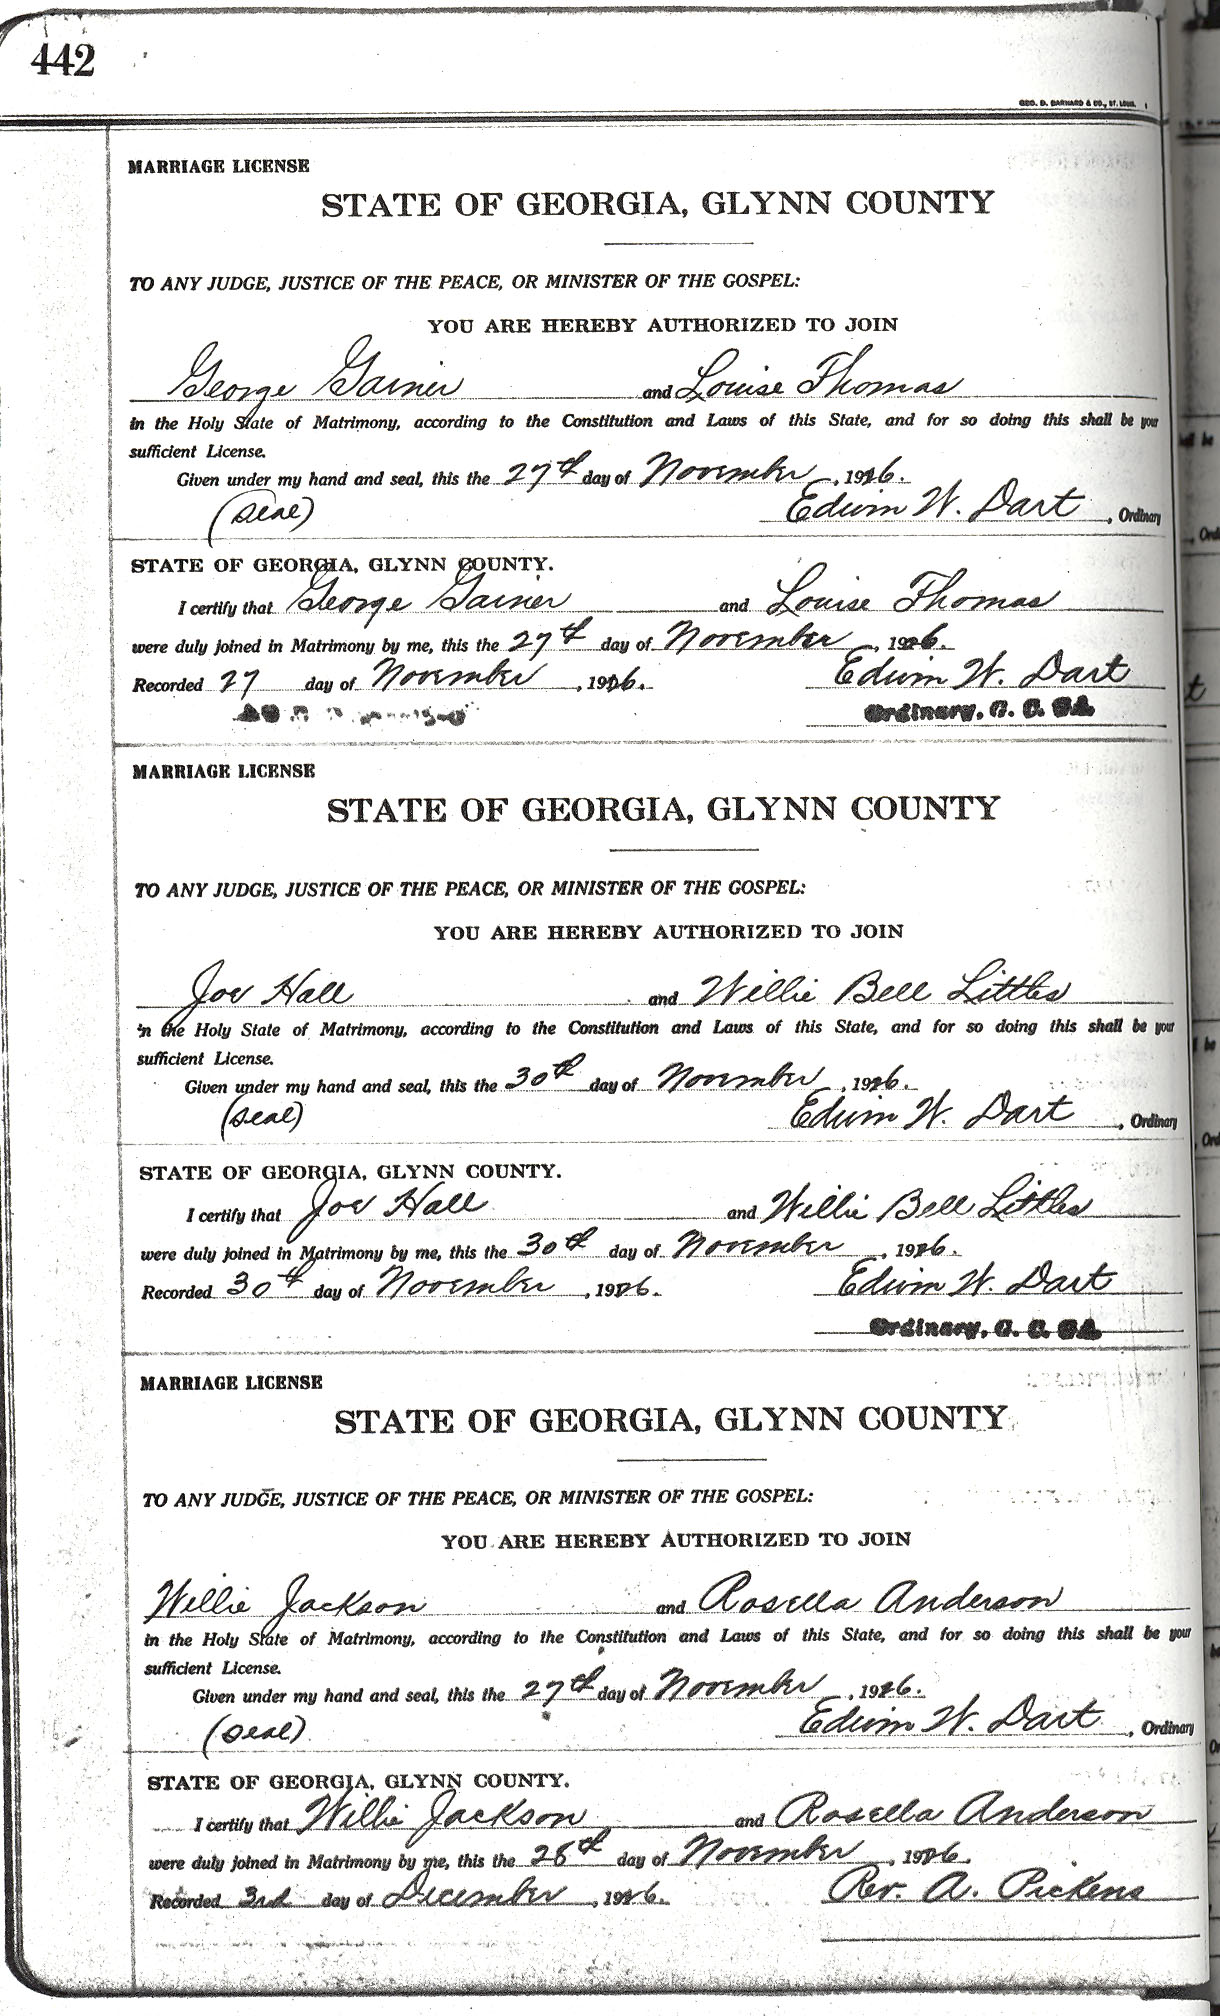 442
GEO. D. BARNARD & CO., ST. LOUIS.
MARRIAGE LICENSE
STATE OF GEORGIA, GLYNN COUNTY
TO ANY JUDGE, JUSTICE OF THE PEACE, OR MINISTER OF THE GOSPEL:
YOU ARE HEREBY AUTHORIZED TO JOIN
George Gainer and Louise Thomas
in the Holy State of Matrimony, according to the Constitution and Laws of this State, and for so doing this shall be your
sufficient License.
Given under my hand and seal, this the 27th day of November, 1926.
(Seal) Edwin W. Dart, Ordinary
STATE OF GEORGIA, GLYNN COUNTY.
I certify that George Gainer and Louise Thomas
were duly joined in Matrimony by me, this the 27th day of November, 1926.
Recorded 27 day of November, 1926. Edwin W. Dart
Ordinary, G. C. GA.
MARRIAGE LICENSE
STATE OF GEORGIA, GLYNN COUNTY
TO ANY JUDGE, JUSTICE OF THE PEACE, OR MINISTER OF THE GOSPEL:
YOU ARE HEREBY AUTHORIZED TO JOIN
Joe Hall and Willie Bell Littles
in the Holy State of Matrimony, according to the Constitution and Laws of this State, and for so doing this shall be your
sufficient License.
Given under my hand and seal, this the 30th day of November, 1926.
(Seal) Edwin W. Dart, Ordinary
STATE OF GEORGIA, GLYNN COUNTY.
I certify that Joe Hall and Willie Bell Littles
were duly joined in Matrimony by me, this the 30th day of November, 1926.
Recorded 30th day of November, 1926. Edwin W. Dart
Ordinary, G. C. GA.
MARRIAGE LICENSE
STATE OF GEORGIA, GLYNN COUNTY
TO ANY JUDGE, JUSTICE OF THE PEACE, OR MINISTER OF THE GOSPEL:
YOU ARE HEREBY AUTHORIZED TO JOIN
Willie Jackson and Rosella Anderson
in the Holy State of Matrimony, according to the Constitution and Laws of this State, and for so doing this shall be your
sufficient License.
Given under my hand and seal, this the 27th day of November, 1926.
(Seal) Edwin W. Dart, Ordinary
STATE OF GEORGIA, GLYNN COUNTY.
I certify that Willie Jackson and Rosella Anderson
were duly joined in Matrimony by me, this the 28th day of November, 1926.
Recorded 3rd day of December, 1926. Rev. A. Pickens